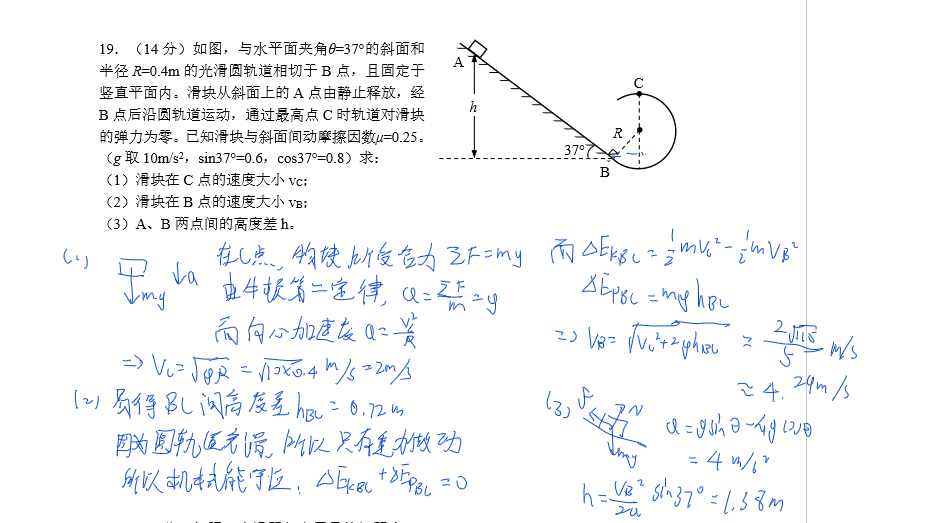 19．（14 分）如图，与水平面夹角θ=37°的斜面和
半径 R=0.4m 的光滑圆轨道相切于 B 点，且固定于
竖直平面内。滑块从斜面上的 A 点由静止释放，经
B 点后沿圆轨道运动，通过最高点 C 时轨道对滑块
的弹力为零。已知滑块与斜面间动摩擦因数μ=0.25。
（g 取 10m/s²，sin37°=0.6，cos37°=0.8）求：
（1）滑块在 C 点的速度大小 vC；
（2）滑块在 B 点的速度大小 vB；
（3）A、B 两点间的高度差 h。
A
h
37°
B
R
C
(1)
mg
↓a
在C点，物块所受合力 ΣF=mg
由牛顿第二定律，a=ΣF/m=g
而向心加速度 a=v²/R
=> Vc=√gR = √10×0.4 m/s=2m/s
(2) 易得BC间高度差 hBC = 0.72m
因为圆轨道光滑，所以只有重力做功
所以机械能守恒，ΔEkBC+ΔEpBC=0
而 ΔEkBC = ½mVc²-½mVB²
ΔEpBC=mghBC
=> VB=√Vc²+2ghBC = 2√115/5 m/s
≈ 4.29m/s
(3) f N
mg
a=gsinθ-μgcosθ
= 4 m/s²
h=VB²/2a sin37°=1.38m